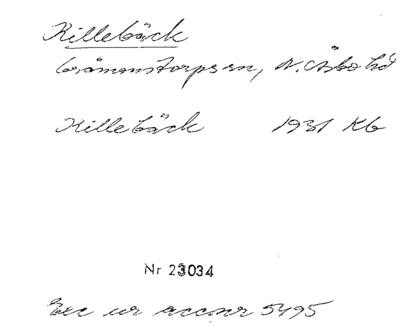 Killebäck
Gråmanstorps sn, N. Åsbo hd
Killebäck 1931 Kb
Nr 23034
Exc ur accnr 5495